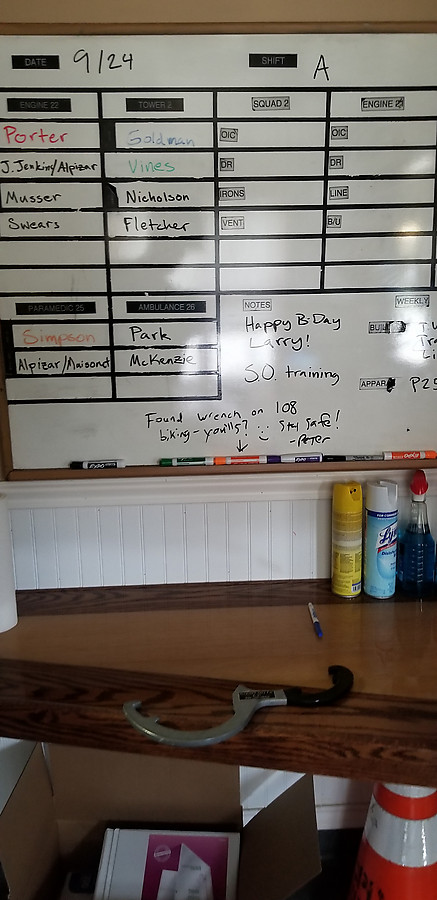 DATE 9/24 SHIFT A
ENGINE 22 TOWER 2 SQUAD 2 ENGINE 2
Porter Goldman OIC OIC
J.Jenkins/Alpizar Vines DR DR
Musser Nicholson IRONS LINE
Swears Fletcher VENT B/U
PARAMEDIC 25 AMBULANCE 26 NOTES WEEKLY
Simpson Park Happy B-Day
Larry!
Alpizar/Maisonet McKenzie
S.O. training
APPAR P25
Found wrench on 108
biking - yours? Stay safe!
-Peter
EXPO
EXPO
Lysol